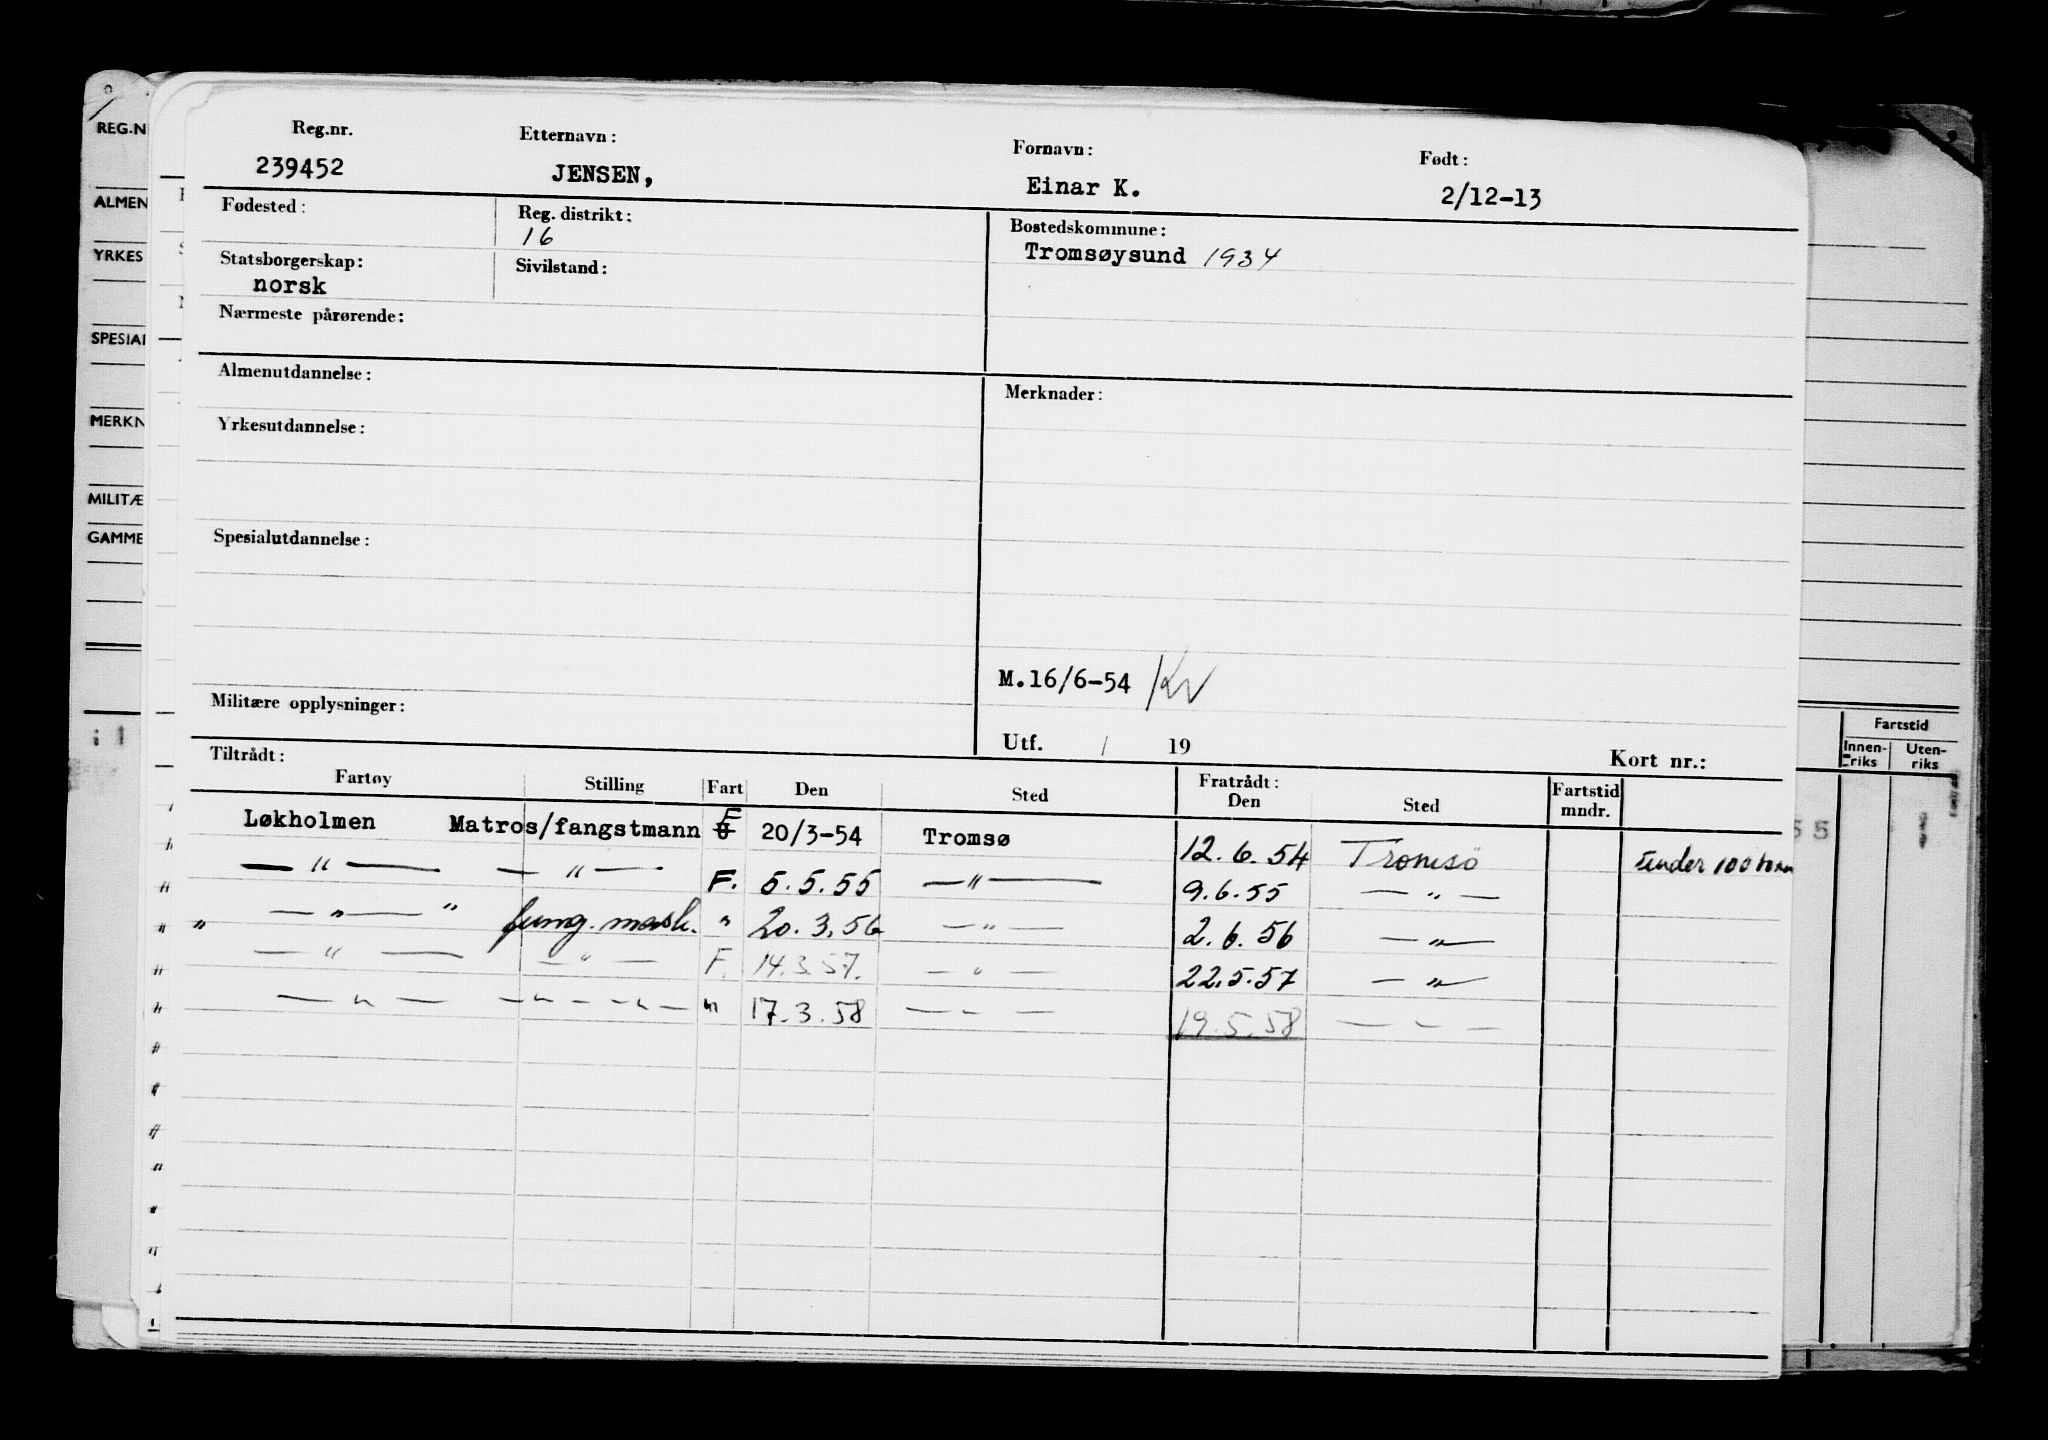 Reg.nr. Etternavn: Fornavn: Født:
239452 JENSEN, Einar K. 2/12-13
Fødested: Reg. distrikt: Bostedskommune:
16 Tromsøysund 1934
Statsborgerskap: Sivilstand:
norsk
Nærmeste pårørende:
Almenutdannelse: Merknader:
Yrkesutdannelse:
Spesialutdannelse:
M.16/6-54 /Kv
Militære opplysninger:
Utf. / 19 Kort nr.:
Tiltrådt: Fratrådt:
Fartøy Stilling Fart Den Sted Den Sted Fartstid mndr.
Løkholmen Matros/fangstmann F 20/3-54 Tromsø 12.6.54 Tromsö under 100 tonn
— " — — " — F. 5.5.55 — " — 9.6.55 — " —
" — " — " fung. mask. " 20.3.56 — " — 2.6.56 — " —
— " — — " — F. 14.3.57. — " — 22.5.57 — " —
— " — — " — — " — " 17.3.58 — - — 19.5.58 — - —
REG.N
ALMEN
YRKES
SPESIAL
MERKN
MILITÆ
GAMME
Fartstid
Innen-riks Uten-riks
55